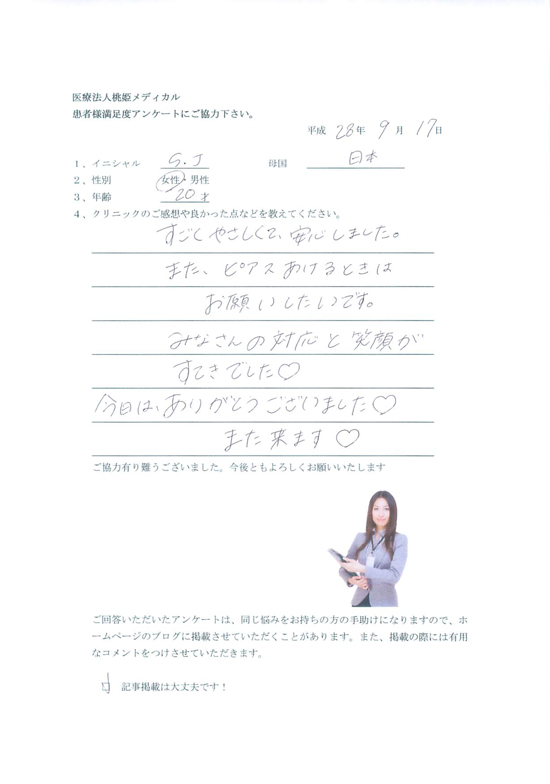 医療法人桃姫メディカル
患者様満足度アンケートにご協力下さい。
平成 28年 9月 17日
1、イニシャル S.J 母国 日本
2、性別 女性・男性
3、年齢 20才
4、クリニックのご感想や良かった点などを教えてください。
すごくやさしくて、安心しました。
また、ピアスあけるときは
お願いしたいです。
みなさんの対応と笑顔が
すてきでした♡
今日は、ありがとうございました♡
また来ます♡
ご協力有り難うございました。今後ともよろしくお願いいたします
ご回答いただいたアンケートは、同じ悩みをお持ちの方の手助けになりますので、ホ
ームページのブログに掲載させていただくことがあります。また、掲載の際には有用
なコメントをつけさせていただきます。
記事掲載は大丈夫です！